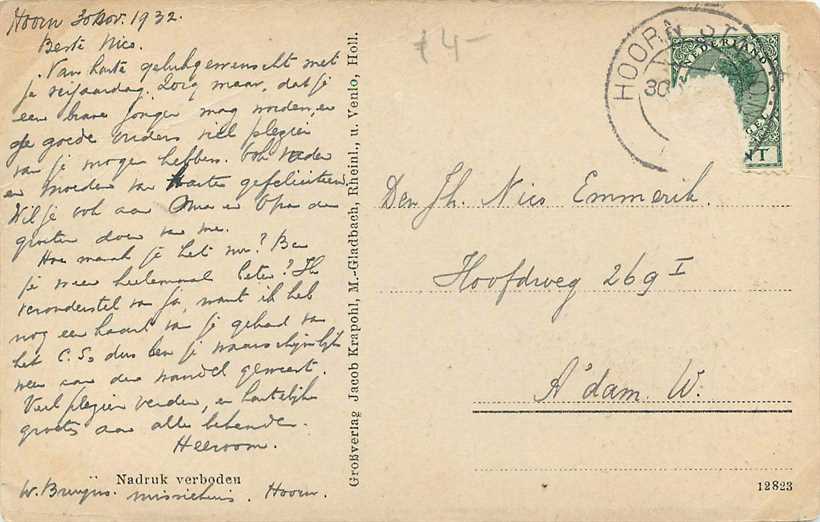 Hoorn 30 Nov. 1932.
Beste Nico.
Van harte gelukgewenscht met
je verjaardag. Zorg maar, dat je
een brave jongen mag worden, en
je goede ouders veel plezier
van je mogen hebben. Ook Vader
en Moeder van harte gefeliciteerd.
Wil je ook aan Oma en Opa de
groeten doen van me.
Hoe maak je het nu? Ben
je weer heelemaal beter? Ik
veronderstel van ja, want ik heb
nog een kaart van je gehad van
het C.S. dus ben je waarschijnlijk
weer aan den wandel geweest.
Veel plezier verder, en hartelijke
groeten aan alle bekenden.
Heeroom.
Nadruk verboden
W. missiehuis. Hoorn.
Großverlag Jacob Krapohl, M.-Gladbach, Rheinl., u. Venlo, Holl.
4-
HOORN ST
30
NEDERLAND
NT
Den Jh. Nico Emmerik.
Hoofdweg 269 I
A'dam. W.
12823